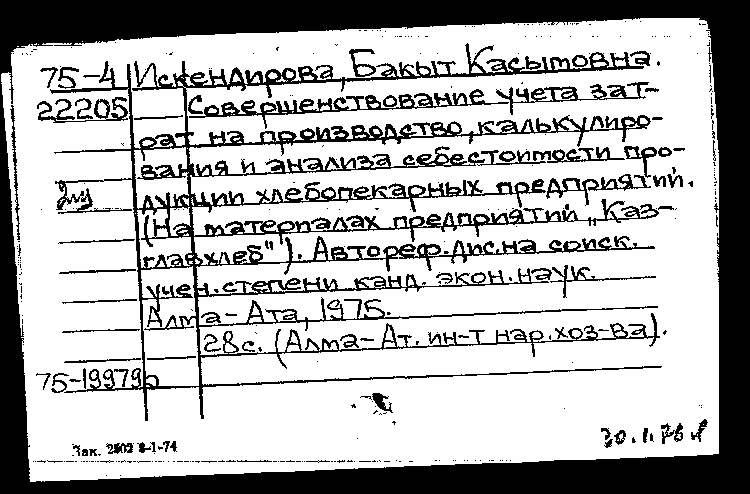 75-4 Искендирова, Бакыт Касымовна.
22205 Совершенствование учета зат-
рат на производство, калькулиро-
вания и анализа себестоимости про-
дукции хлебопекарных предприятий.
(На материалах предприятий „Каз-
главхлеб"). Автореф. дис. на соиск.
учен. степени канд. экон. наук.
Алма-Ата, 1975.
28с. (Алма-Ат. ин-т нар. хоз-ва).
75-19979
Зак. 2502 8-1-74
30.1.76